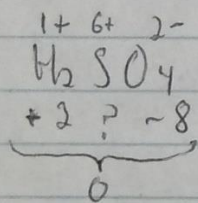 1+ 6+ 2-
H₂ S O₄
+2 ? -8
0